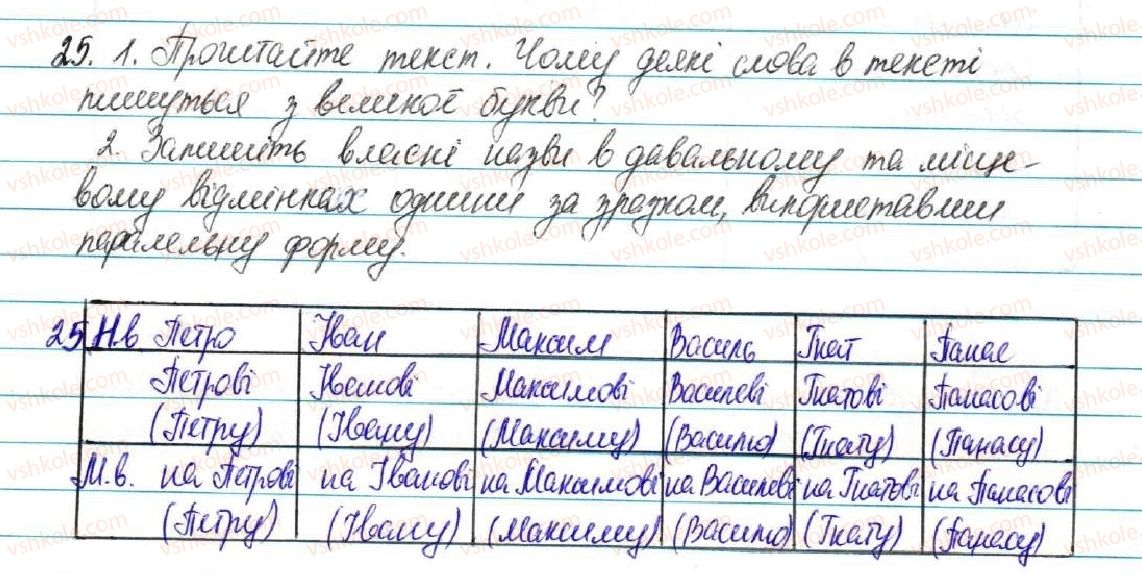 25. 1. Прочитайте текст. Чому деякі слова в тексті
пишуться з великої букви?
2. Запишіть власні назви в давальному та місце-
вому відмінках однини за зразком, використавши
паралельну форму.
25 Н.в Петро Іван Максим Василь Гнат Панас
Петрові Іванові Максимові Василеві Гнатові Панасові
(Петру) (Івану) (Максиму) (Василю) (Гнату) (Панасу)
М.в. на Петрові на Іванові на Максимові на Василеві на Гнатові на Панасові
(Петру) (Івану) (Максиму) (Василю) (Гнату) (Панасу)